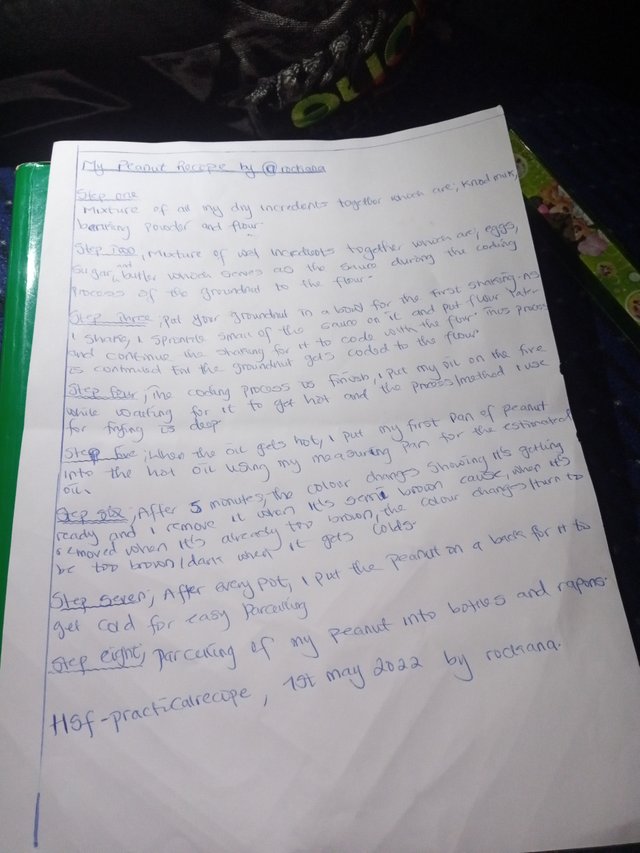 OLIO
My Peanut Recope by @rockana
Step one
Mixture of all my dry incredents together which are; knod muk,
bearking powder and flour.
Step Two, Mixture of wet incredents together which are; eggs,
sugar, and butter which serves as the sauce during the coding
process of the groundnut to the flour.
Step Three; put your groundnut in a bowl for the first sharking. As
I shake, I sprinkle small of the sauce on it and put flour later
and continue the sharking for it to code with the flour. This process
is continued till the groundnut gets coded to the flour.
Step four; The coding process is finish, I put my oil on the fire
while waiting for it to get hot and the process/method I use
for frying is deep
Step five; When the oil gets hot, I put my first pan of peanut
into the hot oil using my measuring pan for the estimated
oil.
Step six; After 5 minutes, the colour changes showing it's getting
ready and I remove it when it's semi brown cause, when it's
removed when it's already too brown, the colour changes/turn to
be too brown/dark when it gets colds.
Step seven; After every pot, I put the peanut on a back for it to
get cold for easy parcelling
Step eight; Parcelling of my peanut into bottles and rapons.
HSf-practicalrecope, 1st may 2022 by rockana.